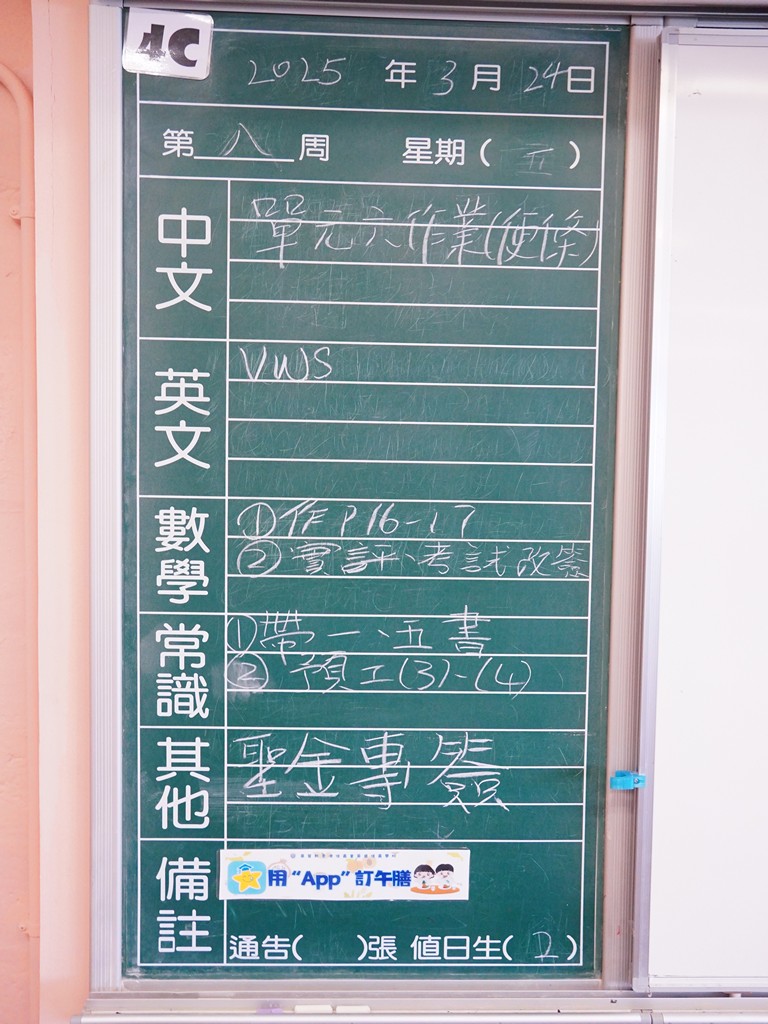 4C
2025 年 3 月 24 日
第 八 周 星期( 五 )
中文
單元六作業(便條)
英文
VWS
數學
①作P16-17
②實評、考試改簽
常識
①帶一、五書
②預工(3)-(4)
其他
聖金專簽
備註
用“App”訂午膳
通告( )張 值日生( D )